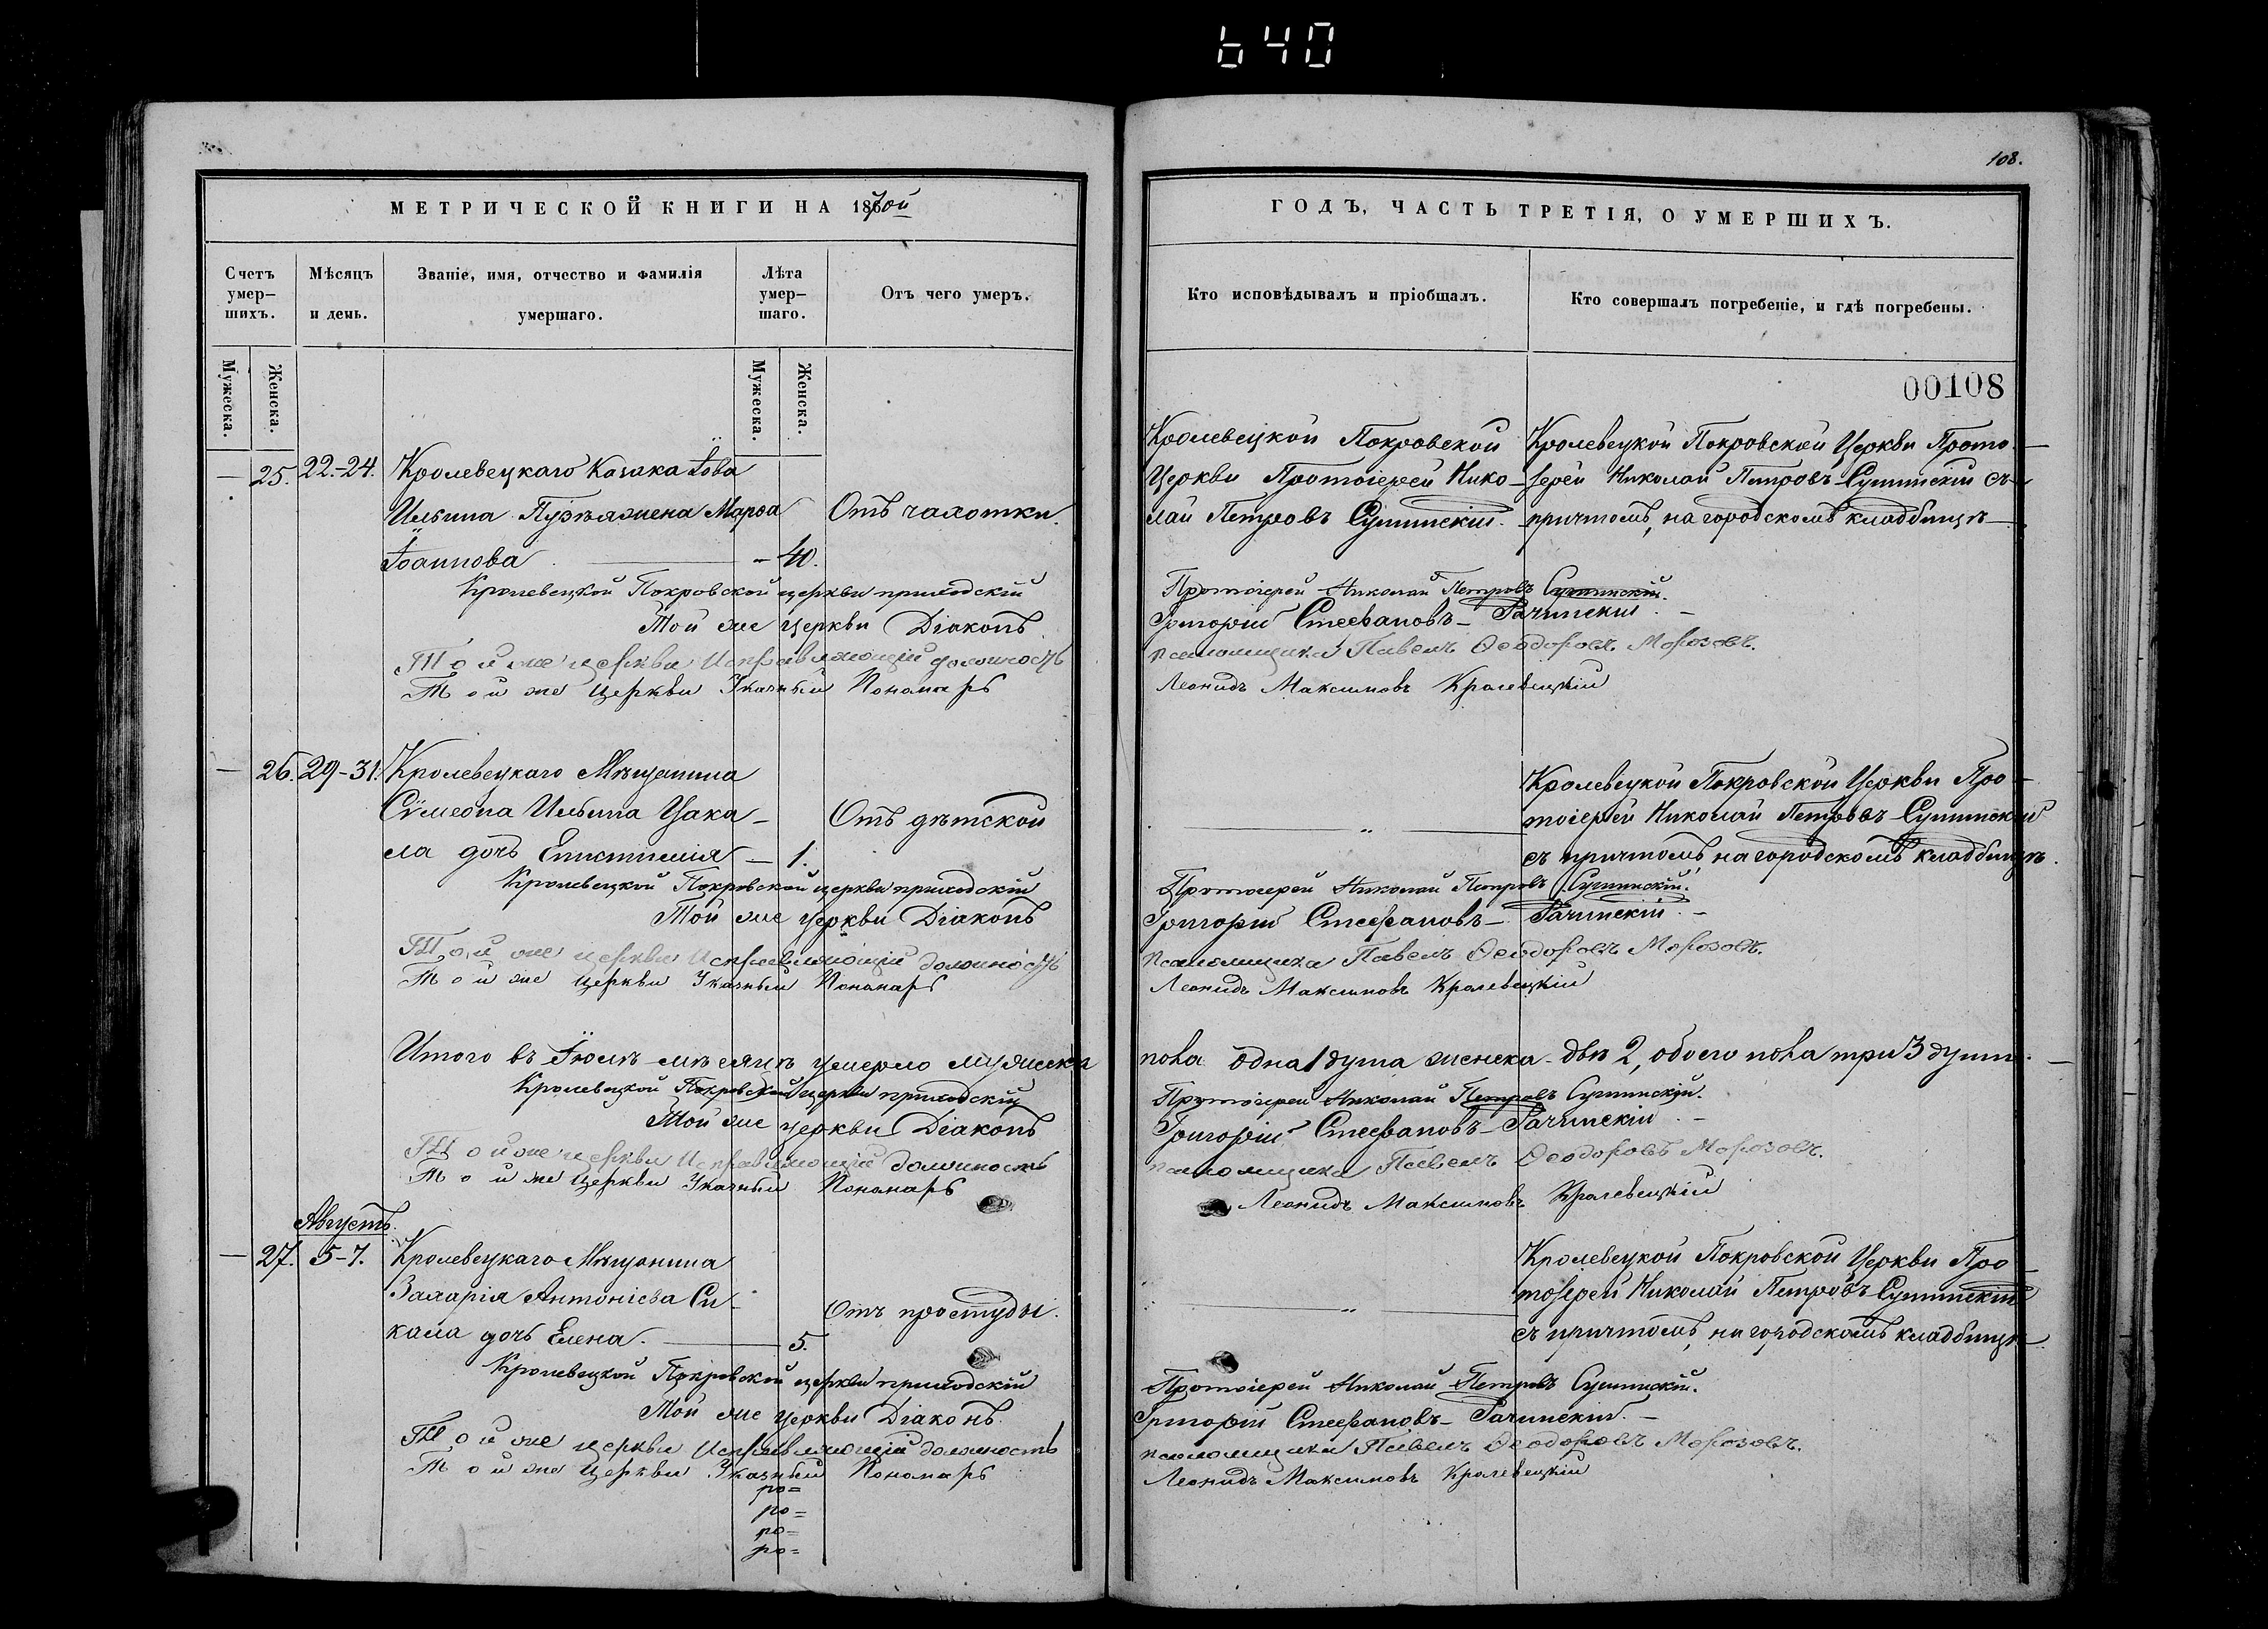 640
108.
МЕТРИЧЕСКОЙ КНИГИ НА 1870й
ГОДЪ, ЧАСТЬ ТРЕТІЯ, О УМЕРШИХЪ.
Счетъ умер-шихъ.
Мѣсяцъ и день.
Званіе, имя, отчество и фамилія умершаго.
Лѣта умер-шаго.
Отъ чего умеръ.
Кто исповѣдывалъ и пріобщалъ.
Кто совершалъ погребеніе, и гдѣ погребены.
Мужеска.
Женска.
Мужеска.
Женска.
00108
— 25. 22-24. Кролевецкаго Козака Іова
Ильина Марѳа
Іоаннова — 40.
Отъ чахотки.
Кролевецкой Покровской
Церкви Протоіерей Нико-
лай Петровъ Сушинскій.
Кролевецкой Покровской Церкви Прото-
іерей Николай Петровъ Сушинскій съ
причтомъ, на городскомъ кладбищѣ
Кролевецкой Покровской церкви приходскій Протоіерей Николай Петровъ Сушинскій.
Той же Церкви Діаконъ Григорій Стефановъ Рачинскій.
Той же церкви Исправляющій должность псаломщика Павелъ Ѳеодоровъ Морозовъ.
Той же Церкви Указный Пономарь Леонидъ Максимовъ Кролевецкій
— 26. 29-31. Кролевецкаго Мѣщанина
Сѵмеона Ильина Цака-
ла дочь Епистимія — 1.
Отъ дѣтской
„
Кролевецкой Покровской Церкви Про-
тоіерей Николай Петровъ Сушинскій
съ причтомъ на городскомъ кладбищѣ.
Кролевецкой Покровской церкви приходскій Протоіерей Николай Петровъ Сушинскій.
Той же Церкви Діаконъ Григорій Стефановъ Рачинскій.
Той же церкви Исправляющій должность псаломщика Павелъ Ѳеодоровъ Морозовъ.
Той же Церкви Указный Пономарь Леонидъ Максимовъ Кролевецкій
Итого въ Іюлѣ мѣсяцѣ умерло мужеска пола одна 1 душа женска двѣ 2, обоего пола три 3 души.
Кролевецкой Покровской церкви приходскій Протоіерей Николай Петровъ Сушинскій.
Той же Церкви Діаконъ Григорій Стефановъ Рачинскій
Той же церкви Исправляющій должность псаломщика Павелъ Ѳеодоровъ Морозовъ.
Той же Церкви Указный Пономарь Леонидъ Максимовъ Кролевецкій
Августъ.
— 27. 5-7. Кролевецкаго Мѣщанина
Захарія Антоніева Си-
кала дочь Елена. — 5.
Отъ простуды.
„
Кролевецкой Покровской Церкви Про-
тоіерей Николай Петровъ Сушинскій
съ причтомъ, на городскомъ кладбищѣ
Кролевецкой Покровской церкви приходскій Протоіерей Николай Петровъ Сушинскій.
Той же Церкви Діаконъ. Григорій Стефановъ Рачинскій.
Той же церкви Исправляющій должность псаломщика Павелъ Ѳеодоровъ Морозовъ.
Той же Церкви Указный Пономарь Леонидъ Максимовъ Кролевецкій
ро=
ро=
ро=
ро=